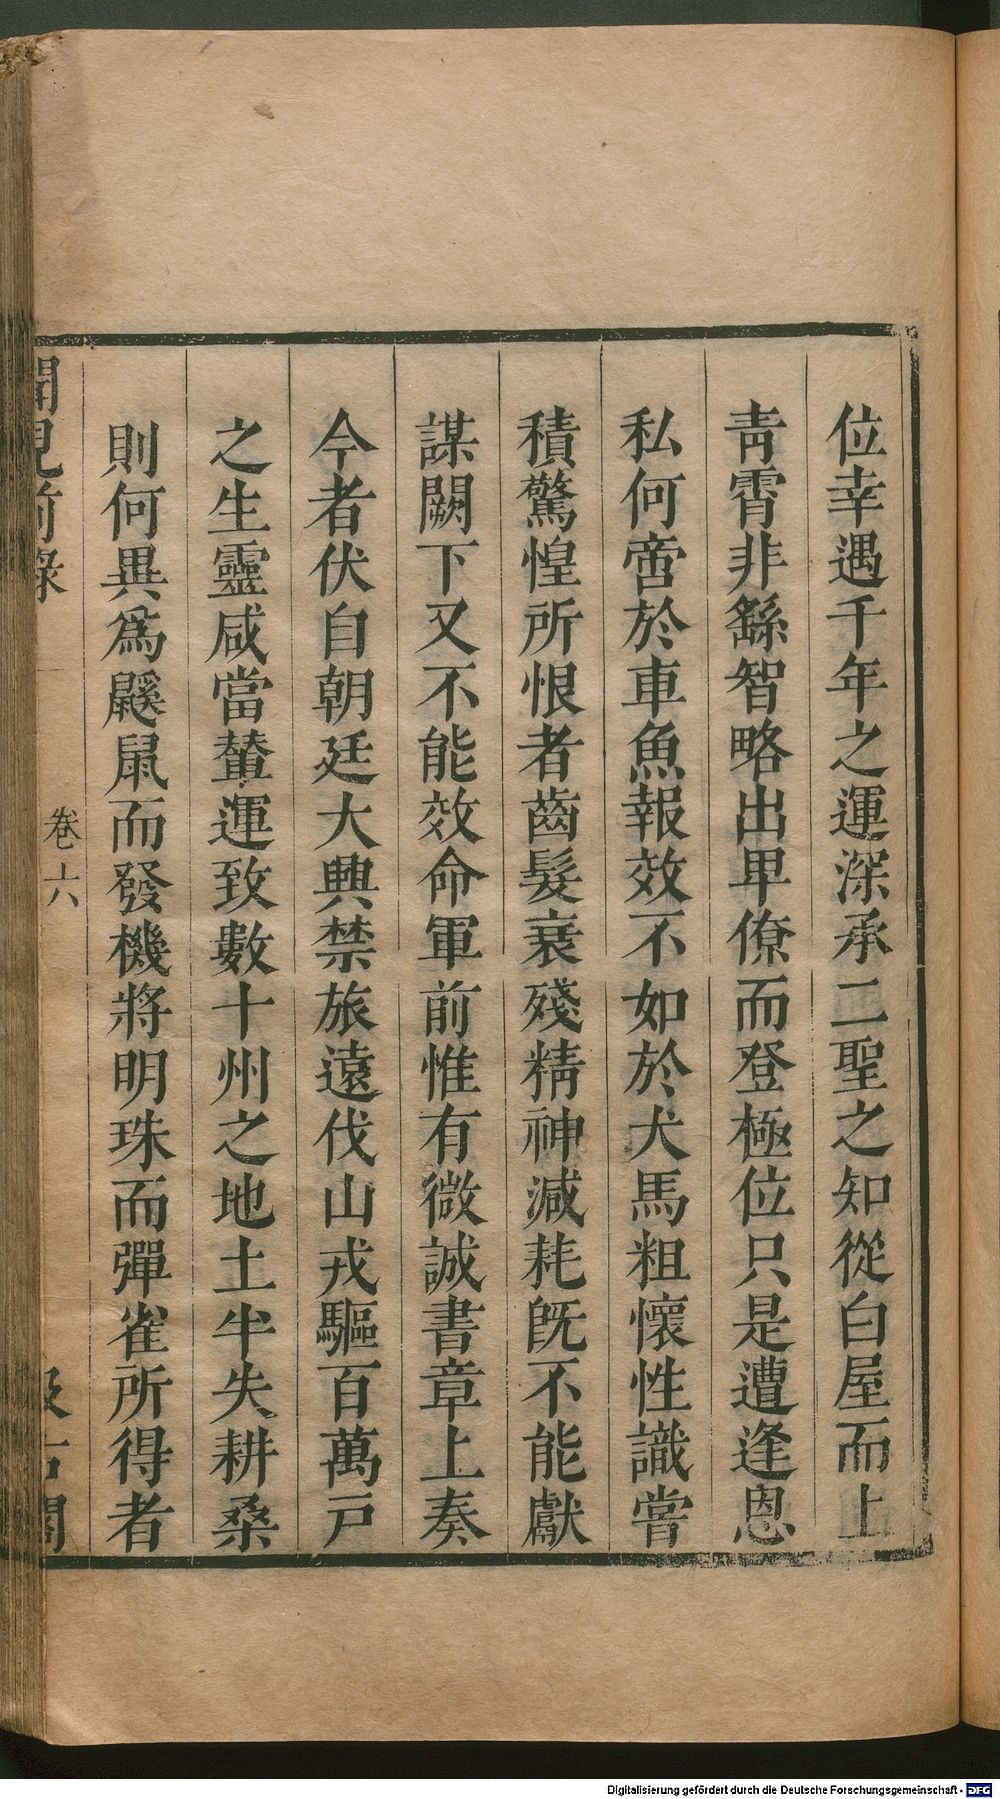 位幸遇千年之運深承二聖之知從白屋而上
靑霄非繇智略出卑僚而登極位只是遭逢恩
私何啻於車魚報效不如於犬馬粗懷性識嘗
積驚惶所恨者齒髮衰殘精神減耗旣不能獻
謀闕下又不能效命軍前惟有微誠書章上奏
今者伏自朝廷大興禁旅遠伐山戎驅百萬戶
之生靈咸當輦運致數十州之地土半失耕桑
則何異爲鼷鼠而發機將明珠而彈雀所得者
聞見前錄
卷六
汲古閣
Digitalisierung gefördert durch die Deutsche Forschungsgemeinschaft - DFG